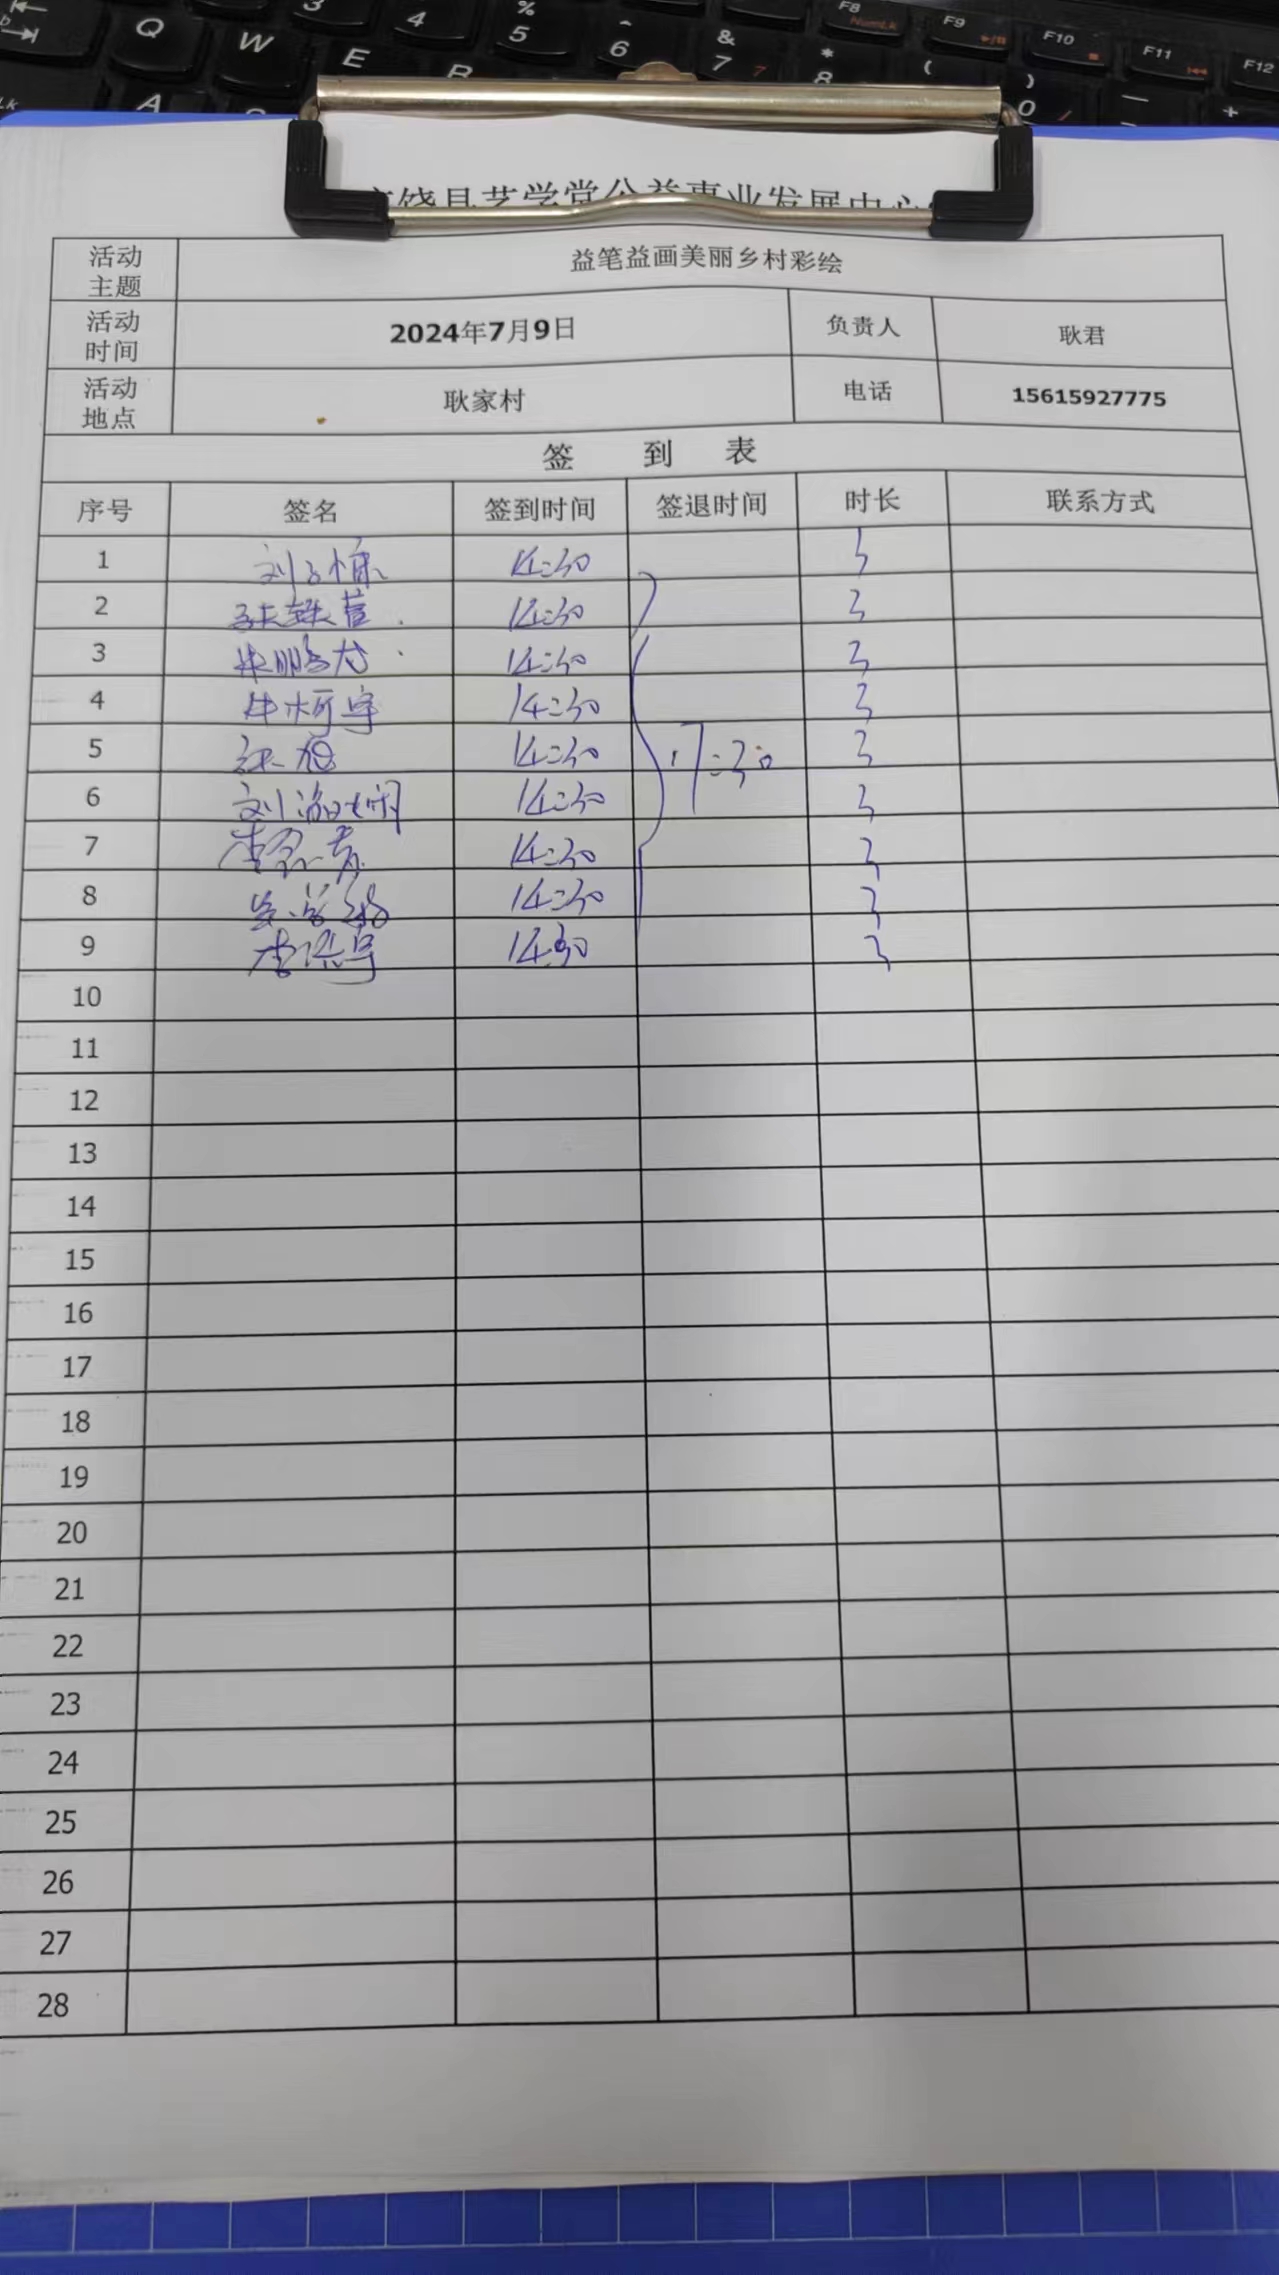 饶县艺学堂公益事业发展中心
活动主题 益笔益画美丽乡村彩绘
活动时间 2024年7月9日 负责人 耿君
活动地点 耿家村 电话 15615927775
签 到 表
序号 签名 签到时间 签退时间 时长 联系方式
1 刘子 14:30 3
2 张 14:30 3
3 朱鹏 14:30 3
4 牛柯宇 14:30 3
5 张旭 14:30 17:30 3
6 刘淑娴 14:30 3
7 李 14:30 3
8 14:30 3
9 李浩宇 14:30 3
10
11
12
13
14
15
16
17
18
19
20
21
22
23
24
25
26
27
28